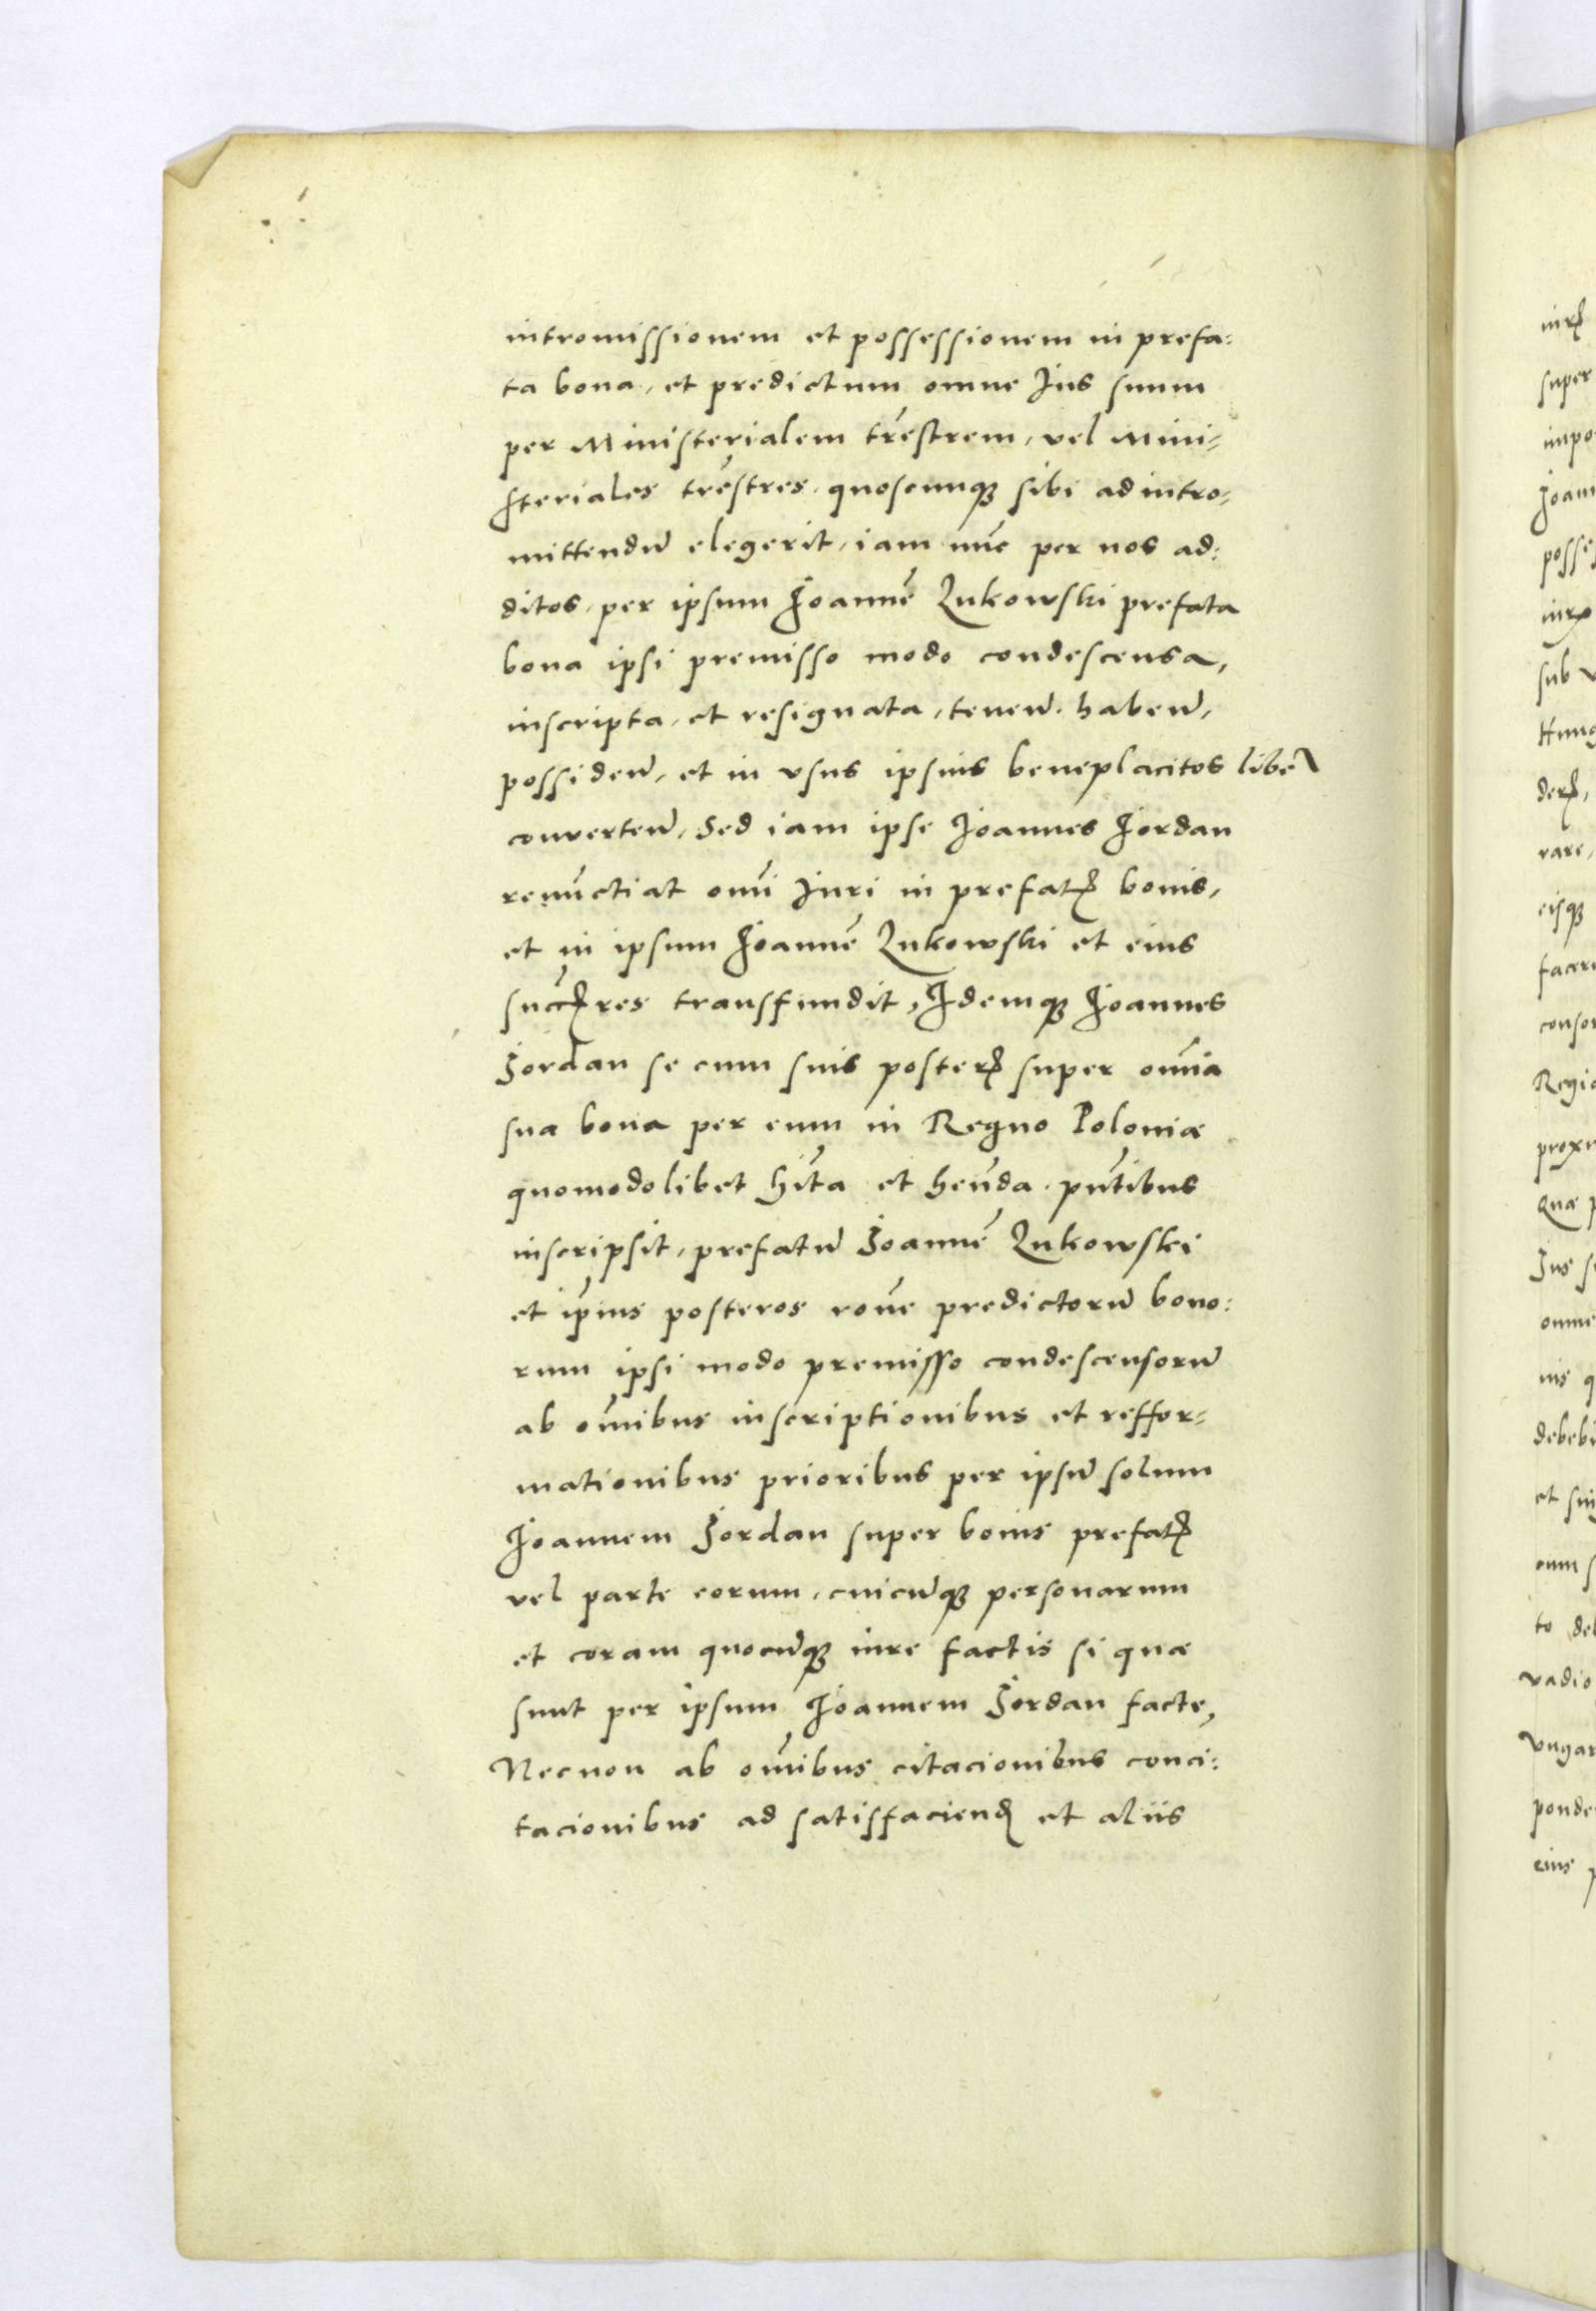 intromissionem et possessionem in prefa:
ta bona, et predictum omne Ius suum
per Ministerialem tr̄estrem, vel Mini-
steriales tr̄estres, quoscunqꝫ sibi ad intro-
mittendū elegerit, iam nūc per nos ad:
ditos, per ipsum Joannē Lukowski prefata
bona ipsi premisso modo condescensa,
inscripta, et resignata, tenen̄. haben̄,
possiden̄, et in vsus ipsius beneplacitos liber̄
converten̄, Sed iam ipse Joannes Jordan
renūctiat omī Iuri in prefatꝭ bonis,
et in ipsum Joannē Lukowski et eius
succ̄ꝭres transfundit, Idemqꝫ Joannes
Jordan se cum suis posterꝭ super om̄ia
sua bona per eum in Regno Poloniæ
quomodolibet hīta et hēnda. pn̄tibus
inscripsit, prefatū Joannē Lukowski
et ip̄ius posteros rōne predictorū bono:
rum ipsi modo premisso condescensorū
ab om̄ibus inscriptionibus et reffor-
mationibus prioribus per ipsū solum
Joannem Jordan super bonis prefatꝭ
vel parte eorum, cuicūqꝫ personarum
et coram quocūqꝫ iure factis si quæ
sunt per ipsum Joannem Jordan facte,
Necnon ab om̄ibus citacionibus conci:
tacionibus ad satisfaciendꝭ et aliis